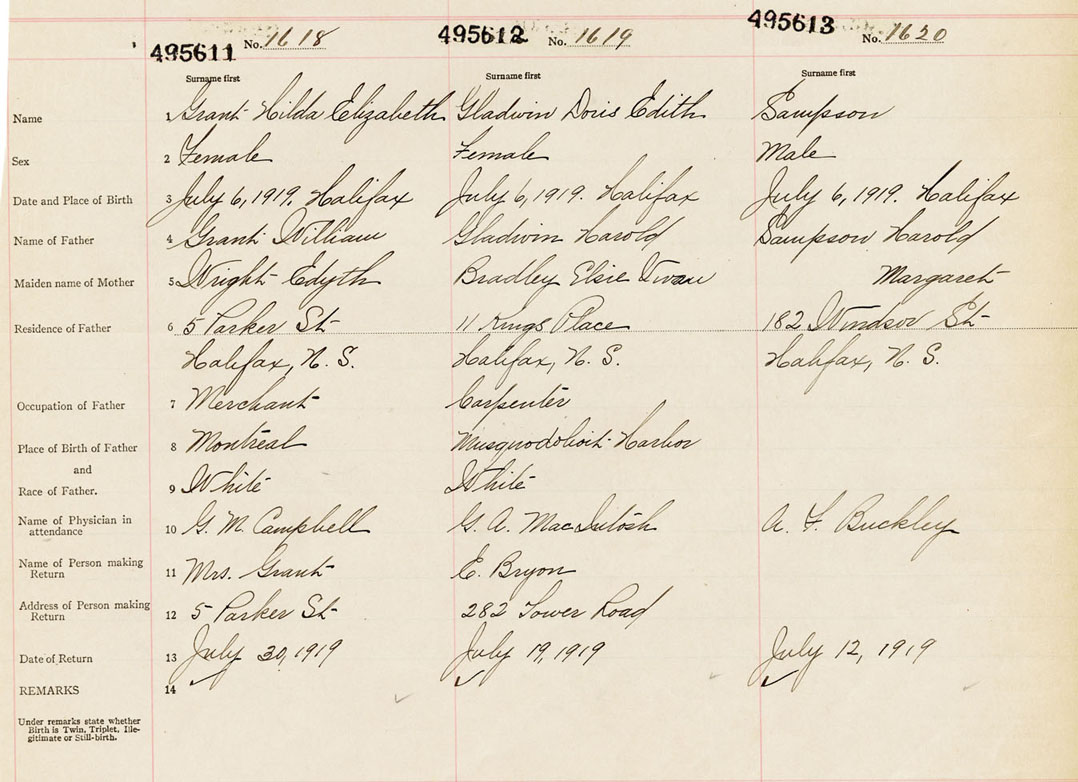 495611 No. 1618 495612 No. 1619 495613 No. 1620
Surname first Surname first Surname first
Name 1 Grant Hilda Elizabeth Gladwin Doris Edith Sampson
Sex 2 Female Female Male
Date and Place of Birth 3 July 6, 1919. Halifax July 6, 1919. Halifax July 6, 1919. Halifax
Name of Father 4 Grant William Gladwin Harold Sampson Harold
Maiden name of Mother 5 Wright Edyth Bradley Elsie Margaret
Residence of Father 6 5 Parker St 11 Kings Place 182 Windsor St
Halifax, N. S. Halifax, N. S. Halifax, N. S.
Occupation of Father 7 Merchant Carpenter
Place of Birth of Father 8 Montreal Musquodoboit Harbor
and
Race of Father. 9 White White
Name of Physician in
attendance 10 G. M. Campbell G. A. MacIntosh A. F. Buckley
Name of Person making
Return 11 Mrs. Grant E. Bryon
Address of Person making
Return 12 5 Parker St 282 Tower Road
Date of Return 13 July 30, 1919 July 19, 1919 July 12, 1919
REMARKS 14
Under remarks state whether
Birth is Twin, Triplet, Ille-
gitimate or Still-birth.